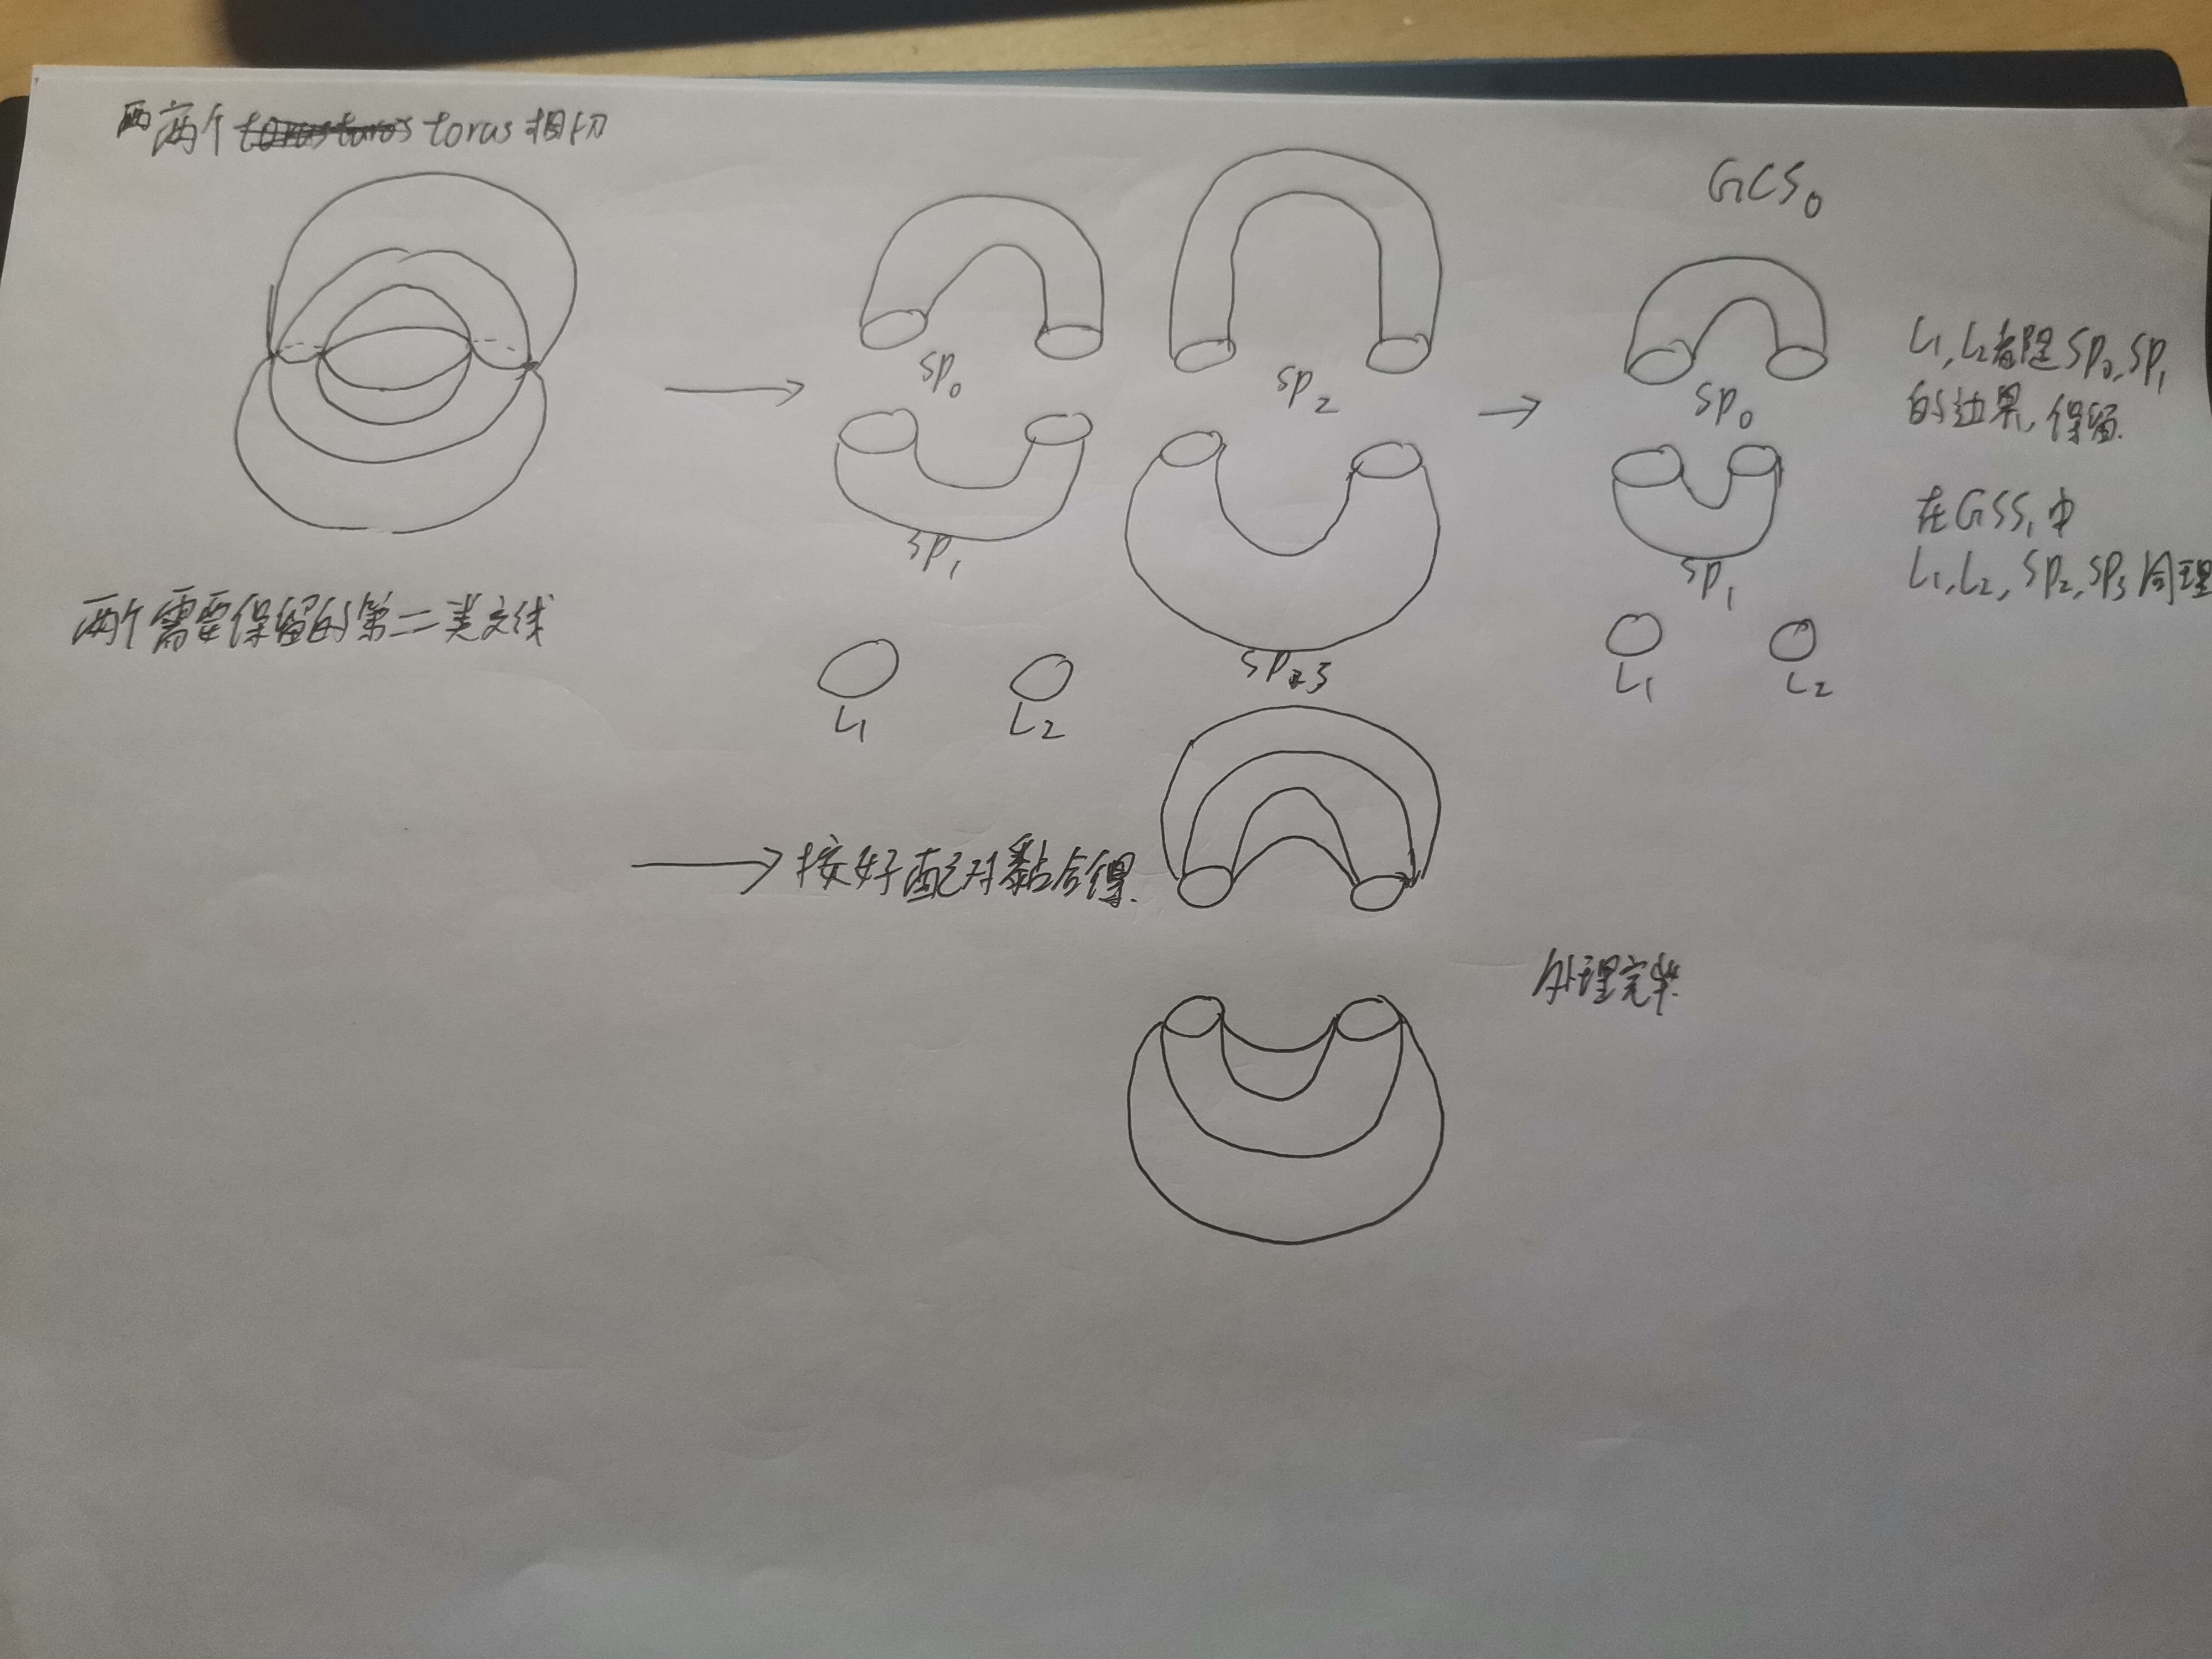 两两个 torus 相切
两个需要保留的第二类交线
SP₀
SP₁
L₁ L₂
SP₂
SP₃
GCS₀
SP₀
SP₁
L₁ L₂
L₁, L₂都是SP₀, SP₁
的边界, 保留.
在GSS₁中
L₁, L₂, SP₂, SP₃同理
按好配对黏合得.
处理完毕.